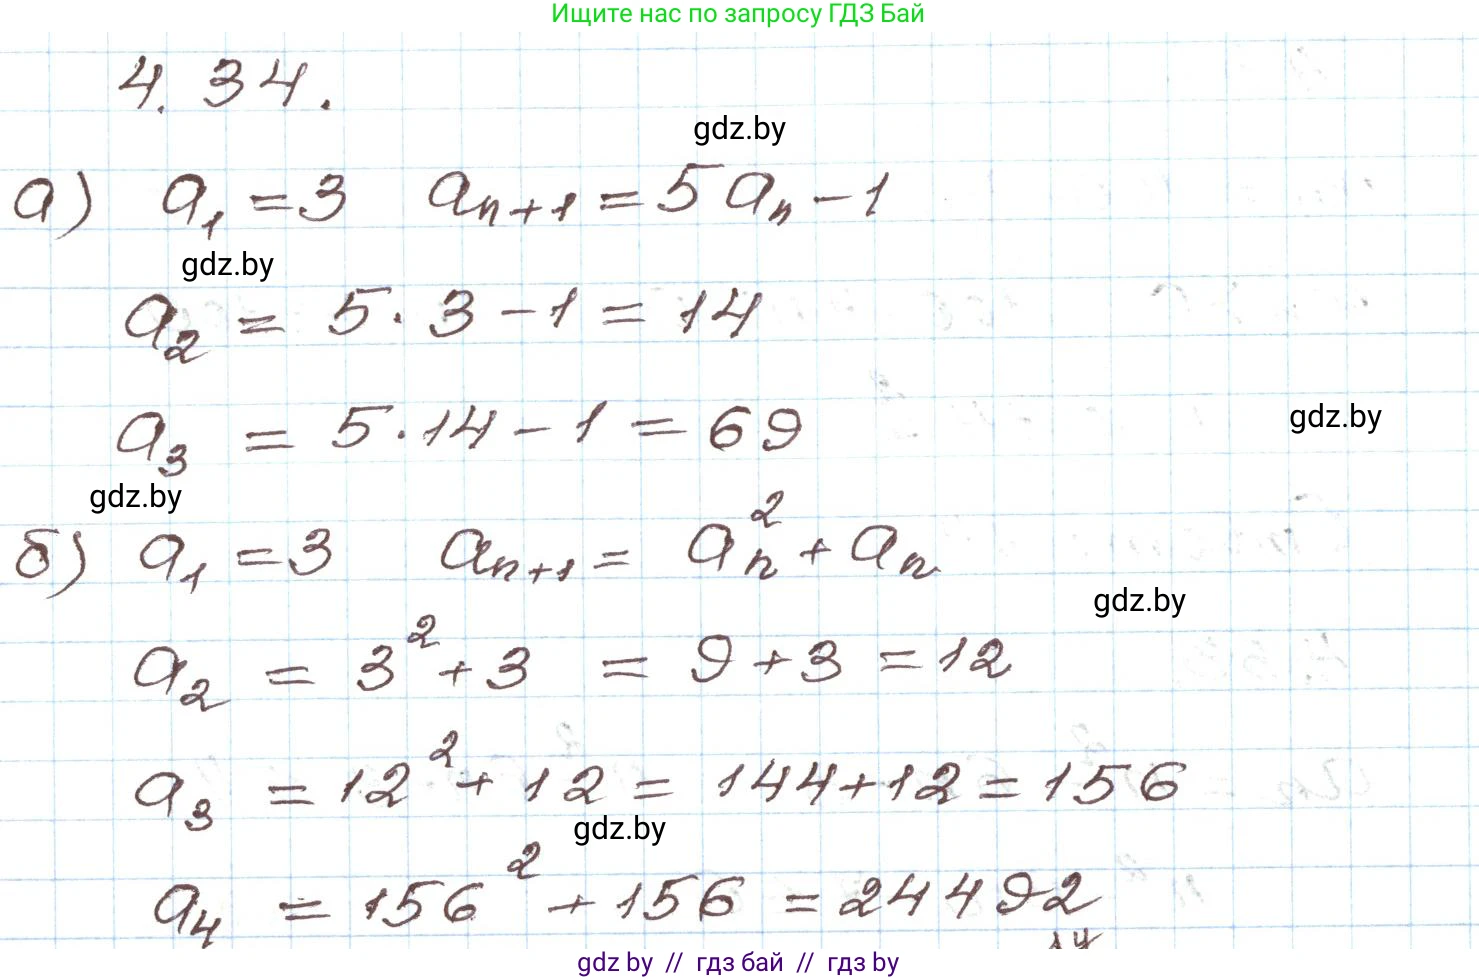 Ищите нас по запросу ГДЗ Бай
4.34.
gdz.by
а) a₁ = 3 aₙ₊₁ = 5aₙ - 1
gdz.by
a₂ = 5 · 3 - 1 = 14
a₃ = 5 · 14 - 1 = 69
gdz.by
gdz.by
б) a₁ = 3 aₙ₊₁ = aₙ² + aₙ
gdz.by
a₂ = 3² + 3 = 9 + 3 = 12
a₃ = 12² + 12 = 144 + 12 = 156
gdz.by
a₄ = 156² + 156 = 24492
gdz.by // гдз бай // гдз by